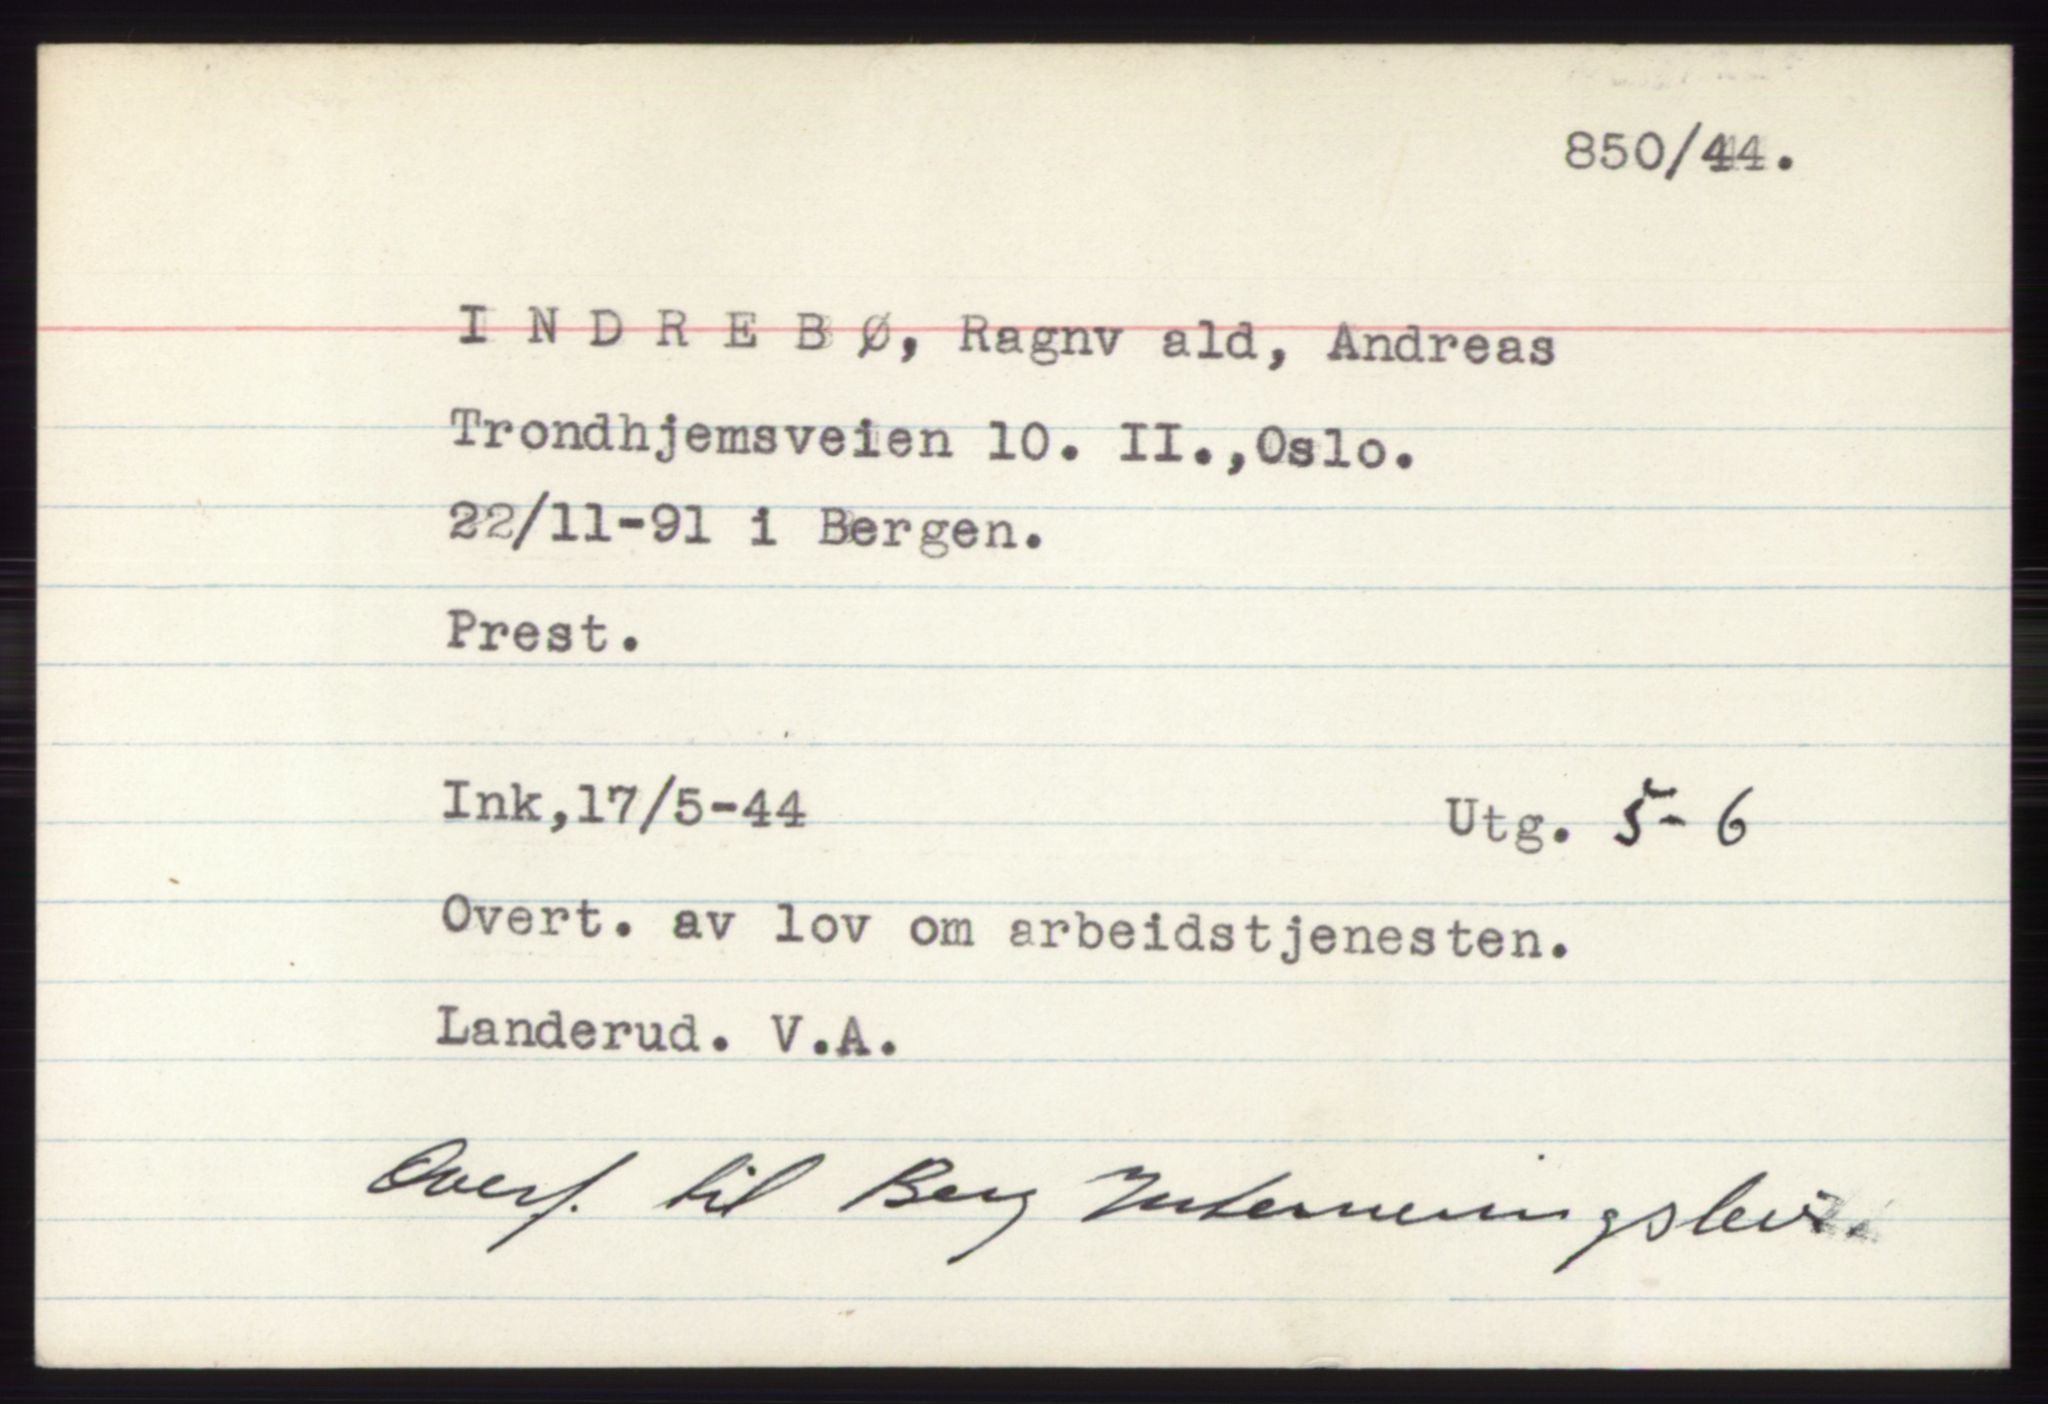 850/44.
I N D R E B Ø, Ragnv ald, Andreas
Trondhjemsveien 10. II.,Oslo.
22/11-91 i Bergen.
Prest.
Ink,17/5-44 Utg. 5-6
Overt. av lov om arbeidstjenesten.
Landerud. V.A.
Overf. til Berg Interneringsleir